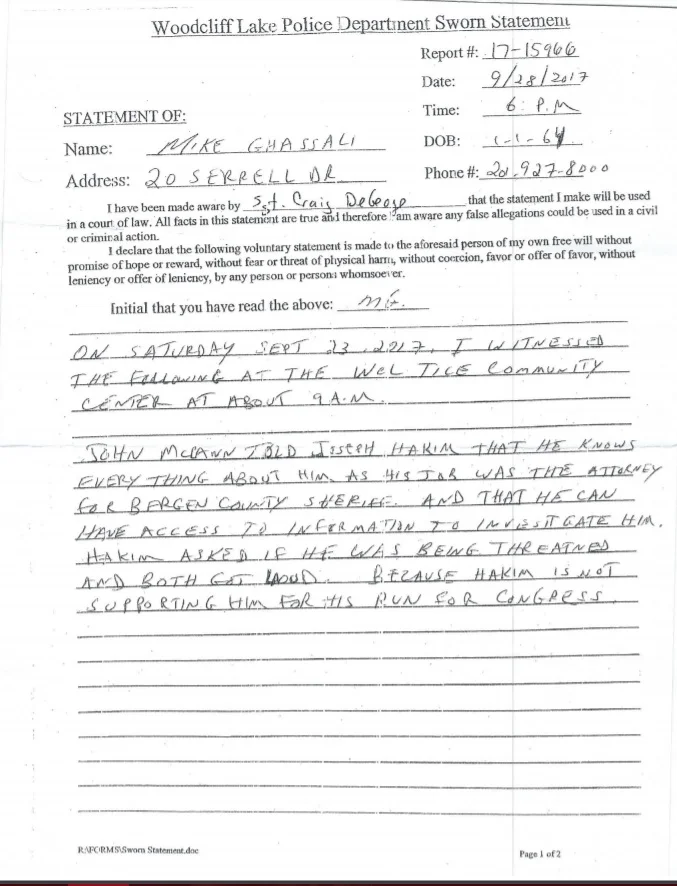 Woodcliff Lake Police Department Sworn Statement
Report #: 17-15966
Date: 9/28/2017
Time: 6: P.M
STATEMENT OF:
Name: MIKE GHASSALI
DOB: 1-1-64
Address: 20 SERRELL DR
Phone #: 201.927-8000
I have been made aware by Sgt. Craig DeGeorge that the statement I make will be used
in a court of law. All facts in this statement are true and therefore I am aware any false allegations could be used in a civil
or criminal action.
I declare that the following voluntary statement is made to the aforesaid person of my own free will without
promise of hope or reward, without fear or threat of physical harm, without coercion, favor or offer of favor, without
leniency or offer of leniency, by any person or persons whomsoever.
Initial that you have read the above: MG.
ON SATURDAY SEPT 23, 2017, I WITNESSED
THE FOLLOWING AT THE WCL TICE COMMUNITY
CENTER AT ABOUT 9 A.M.
JOHN McCANN TOLD JOSEPH HAKIM THAT HE KNOWS
EVERY THING ABOUT HIM, AS HIS JOB WAS THE ATTORNEY
FOR BERGEN COUNTY SHERIFF. AND THAT HE CAN
HAVE ACCESS TO INFORMATION TO INVESTIGATE HIM.
HAKIM ASKED IF HE WAS BEING THREATNED
AND BOTH GOT LOUD. BECAUSE HAKIM IS NOT
SUPPORTING HIM FOR HIS RUN FOR CONGRESS.
R:\FORMS\Sworn Statement.doc
Page 1 of 2